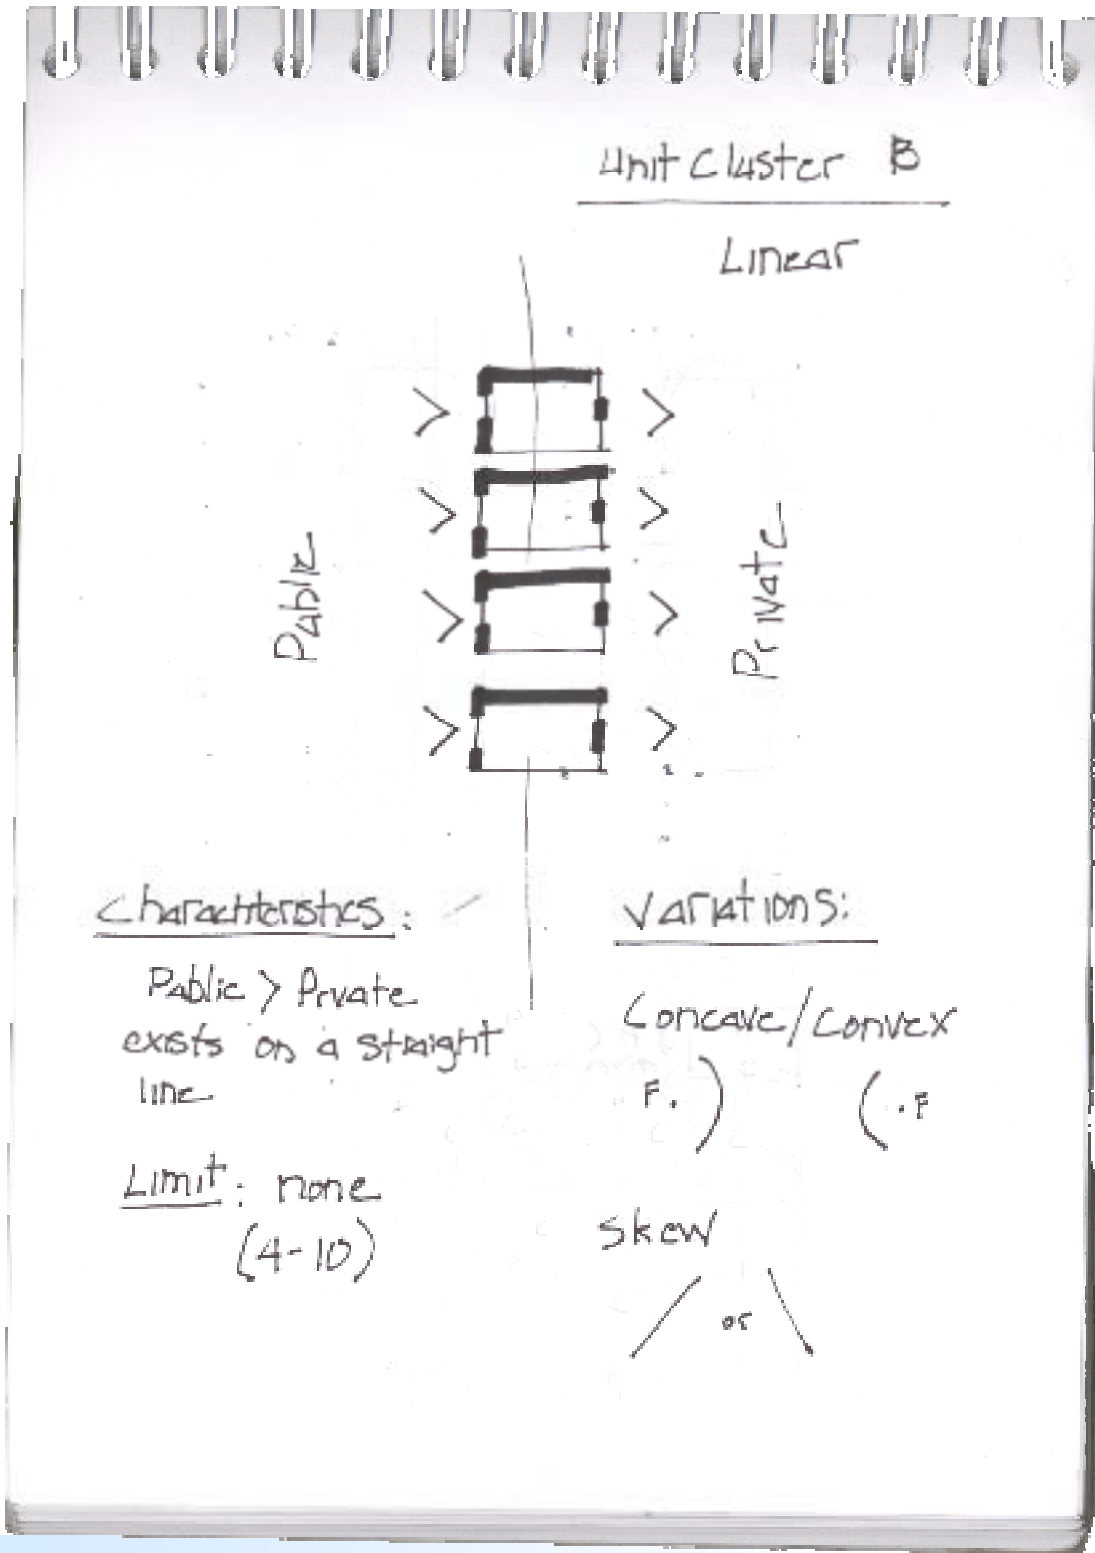 Unit Cluster B
Linear
>
>
>
>
>
>
>
>
Public
Private
Charachteristics:
Public > Prvate
exists on a straight
line
Limit: none
(4-10)
Variations:
Concave/Convex
F. )
( .F
Skew
/ or \